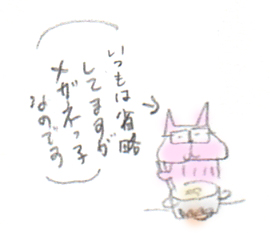 いつもは省略
してますが
メガネっ子
なのです